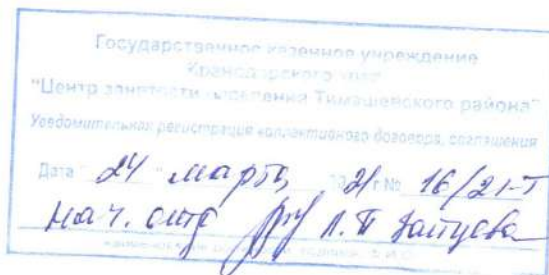 Государственное казенное учреждение
Краснодарского края
"Центр занятости населения Тимашевского района"
Уведомительная регистрация коллективного договора, соглашения
Дата " 24 " марта 2021 г № 16/21-Т
Нач. отд Л. П. Зайцева